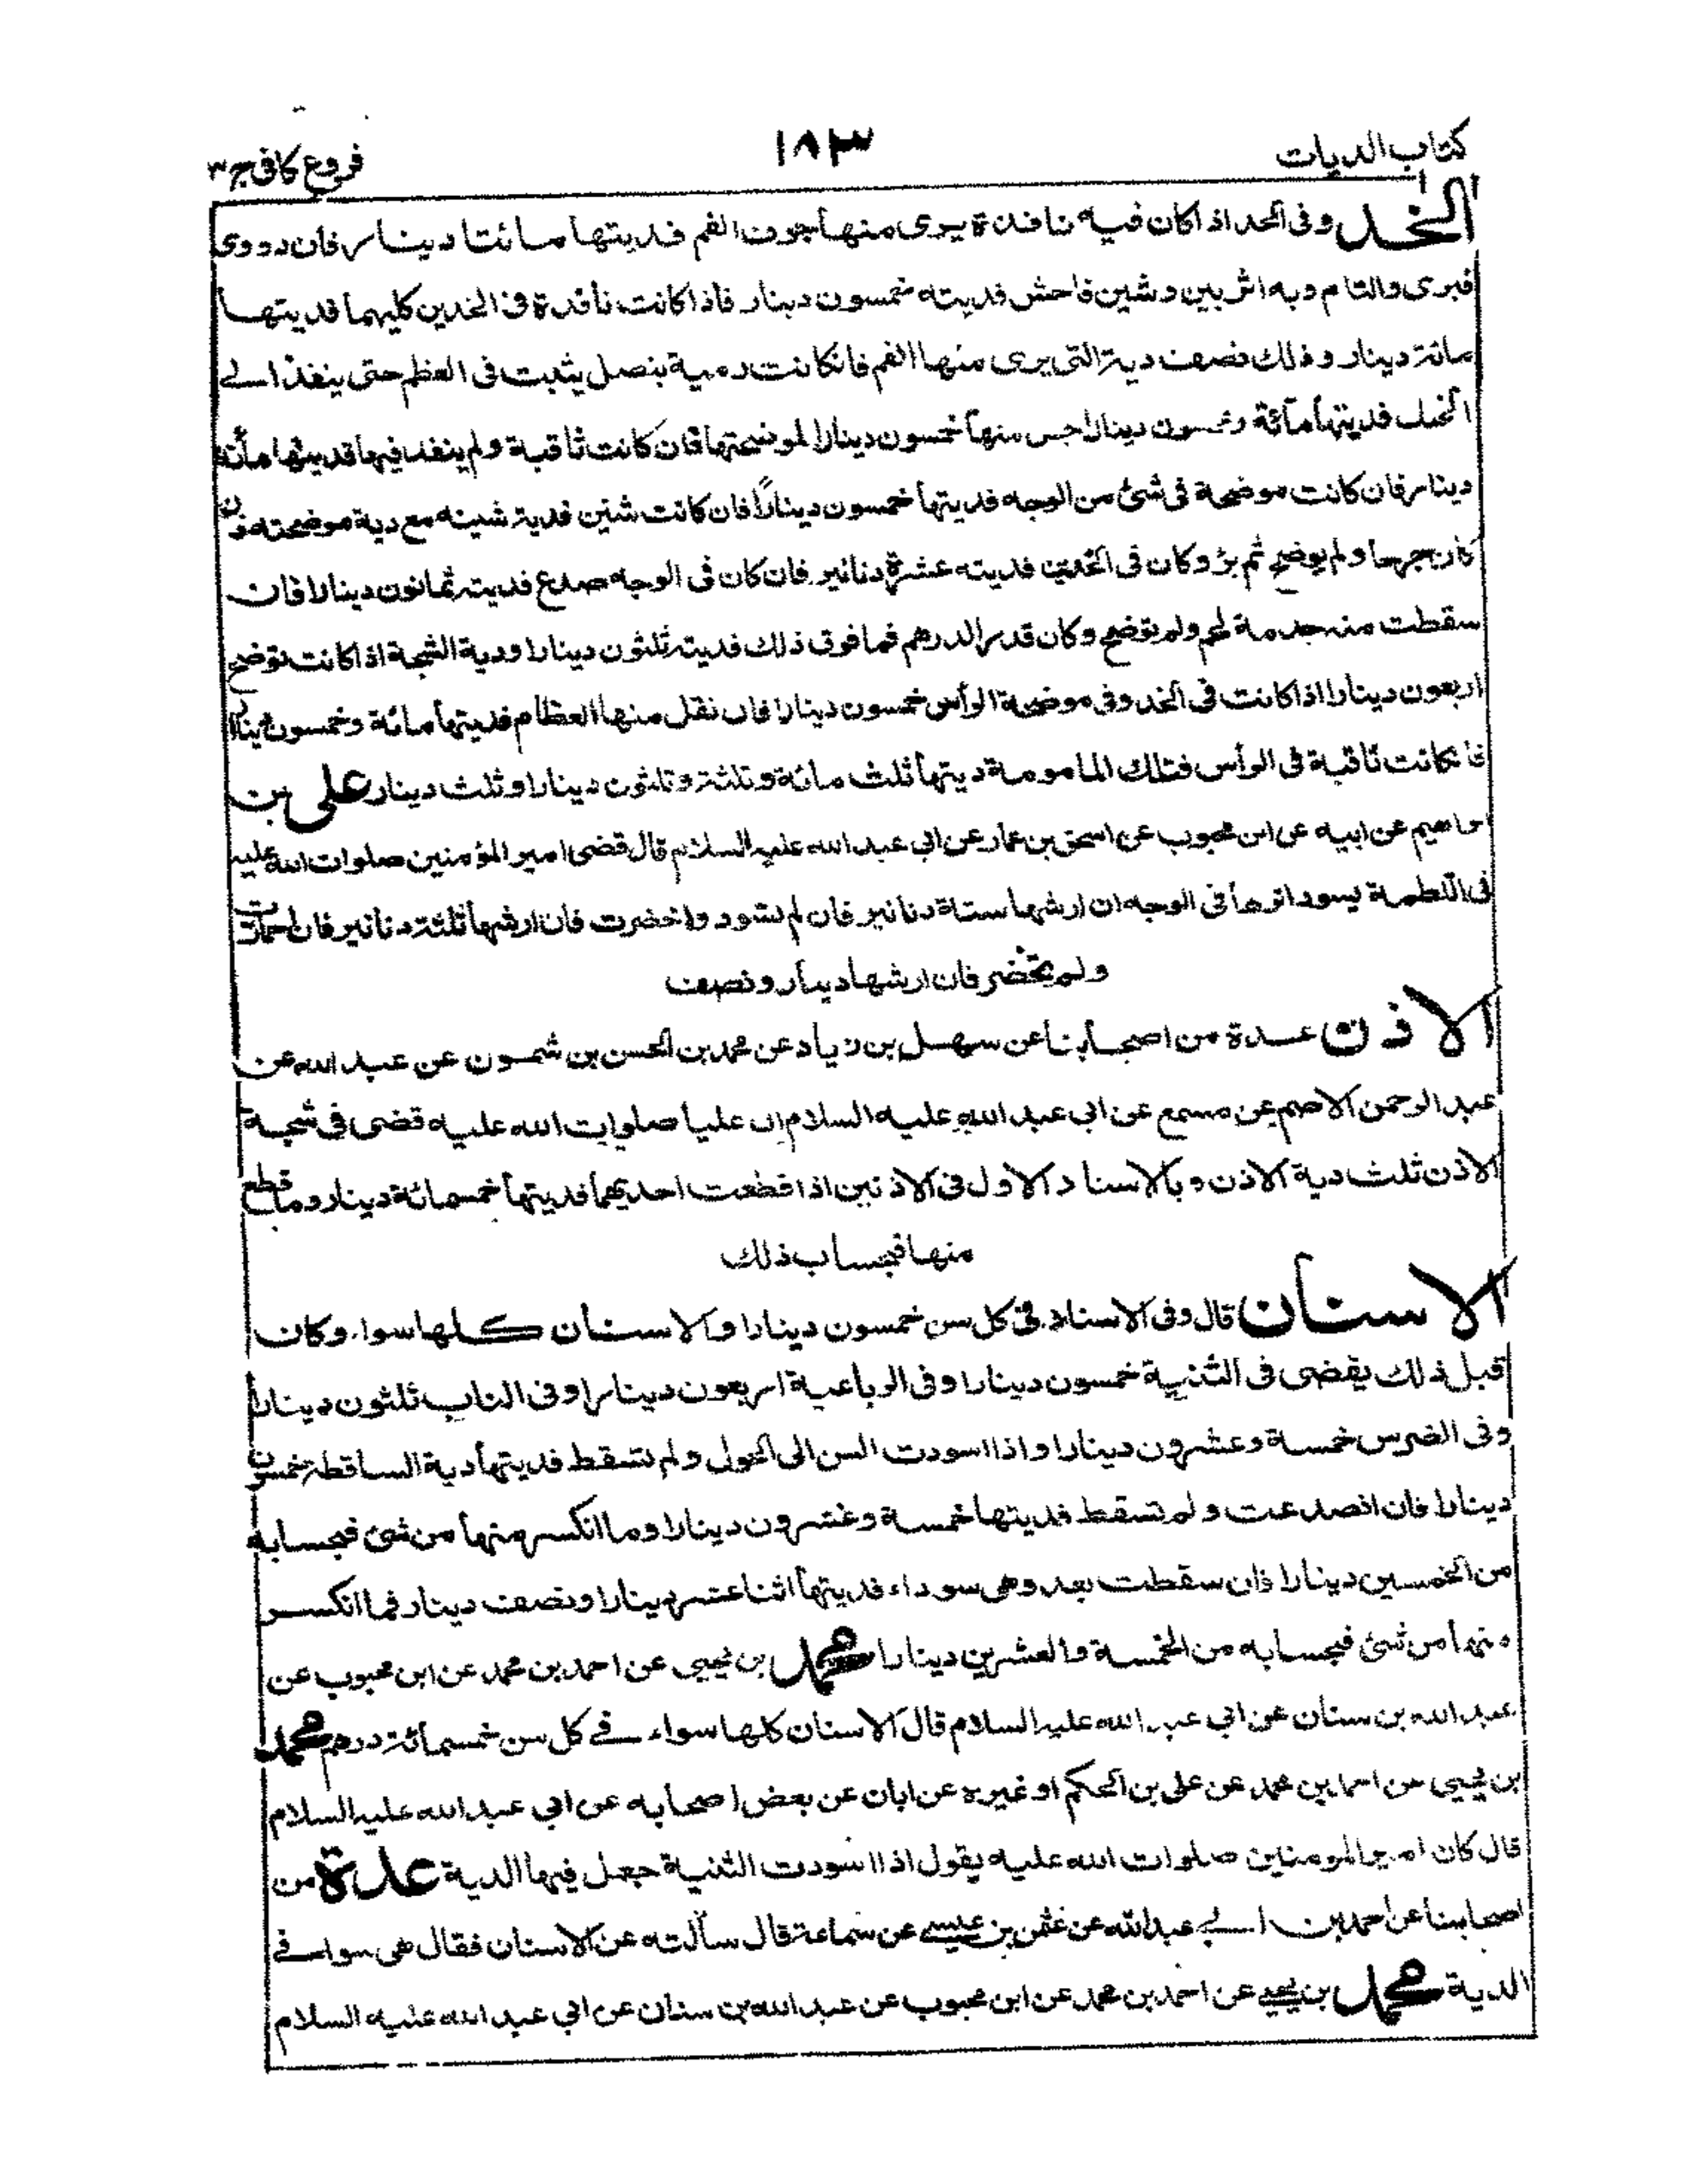 كتاب الديات
١٨٣
فروع كافى ج٣
الخد وفى الخد اذا كان فيه نافذة يرى منها جوف الفم فديتها مائتا دينار فان دووى
فبرى والتام وبه اثر بين وشين فاحش فديته خمسون دينار فاذا كانت نافذة فى الخدين كليهما فديتها
مائة دينار وذلك نصف دية التى يرى منها الفم فانكانت رمية بنصل يثبت فى العظم حتى ينفذ الے
الحنك فديتها مائة وخمسون دينارا جعل منها خمسون دينارا لموضحتها فان كانت ثاقبة ولم ينفذ فيها فديتها مائة
دينار فان كانت موضحة فى شئ من الوجه فديتها خمسون دينارا فان كانت شين فدية شينه مع دية موضحته فان
كان جرحا ولم يوضح ثم برؤ وكان فى الخدين فديته عشرة دنانير فان كان فى الوجه صدع فديته ثمانون دينارا فان
سقطت منه جذمة لحم ولم توضح وكان قدر الدرهم فما فوق ذلك فديته ثلثون دينارا ودية الشجة اذا كانت توضح
اربعون دينارا اذا كانت فى الخد وفى موضحة الرأس خمسون دينارا فان نقل منها العظام فديتها مائة وخمسون دينارا
فانكانت ثاقبة فى الرأس فتلك المامومة ديتها ثلث مائة وثلثة وثلثون دينارا وثلث دينار على بن
ابراهيم عن ابيه عن ابن محبوب عن اسحق بن عمار عن ابى عبد الله عليه السلام قال قضى امير المؤمنين صلوات الله عليه
فى اللطمة يسود اثرها فى الوجه ان ارشها ستة دنانير فان لم تسود واخضرت فان ارشها ثلثة دنانير فان احمارت
ولم تخضر فان ارشها دينار ونصف
الاذن عدة من اصحابنا عن سهل بن زياد عن محمد بن الحسن بن شمون عن عبد الله عن
عبد الرحمن الاصم عن مسمع عن ابى عبد الله عليه السلام ان عليا صلوات الله عليه قضى فى شجة
الاذن ثلث دية الاذن وبالاسناد الاول فى الاذنين اذا قطعت احديهما فديتها خمسمائة دينار وما قطع
منها فبحساب ذلك
الاسنان قال وفى الاسناد فى كل سن خمسون دينارا والاسنان كلها سواء وكان
قبل ذلك يقضى فى الثنية خمسون دينارا وفى الرباعية اربعون دينارا وفى الناب ثلثون دينارا
وفى الضرس خمسة وعشرون دينارا واذا اسودت السن الى الحول ولم تسقط فديتها دية الساقطة خمسون
دينارا فان انصدعت ولم تسقط فديتها خمسة وعشرون دينارا وما انكسر منها من شئ فبحسابه
من الخمسين دينارا فان سقطت بعد وهى سوداء فديتها اثنا عشر دينارا ونصف دينار فما انكسر
منها من شئ فبحسابه من الخمسة والعشرين دينارا محمد بن يحيى عن احمد بن محمد عن ابن محبوب عن
عبد الله بن سنان عن ابى عبد الله عليه السلام قال الاسنان كلها سواء فے كل سن خمسمائة درهم محمد
بن يحيى عن احمد بن محمد عن على بن الحكم او غيره عن ابان عن بعض اصحابه عن ابى عبد الله عليه السلام
قال كان امير المومنين صلوات الله عليه يقول اذا اسودت الثنية جعل فيها الدية عدة من
اصحابنا عن احمد بن ابے عبد الله عن عثمن بن عيسے عن سماعة قال سألته عن الاسنان فقال هى سواء فے
الدية محمد بن يحيے عن احمد بن محمد عن ابن محبوب عن عبد الله بن سنان عن ابى عبد الله عليه السلام